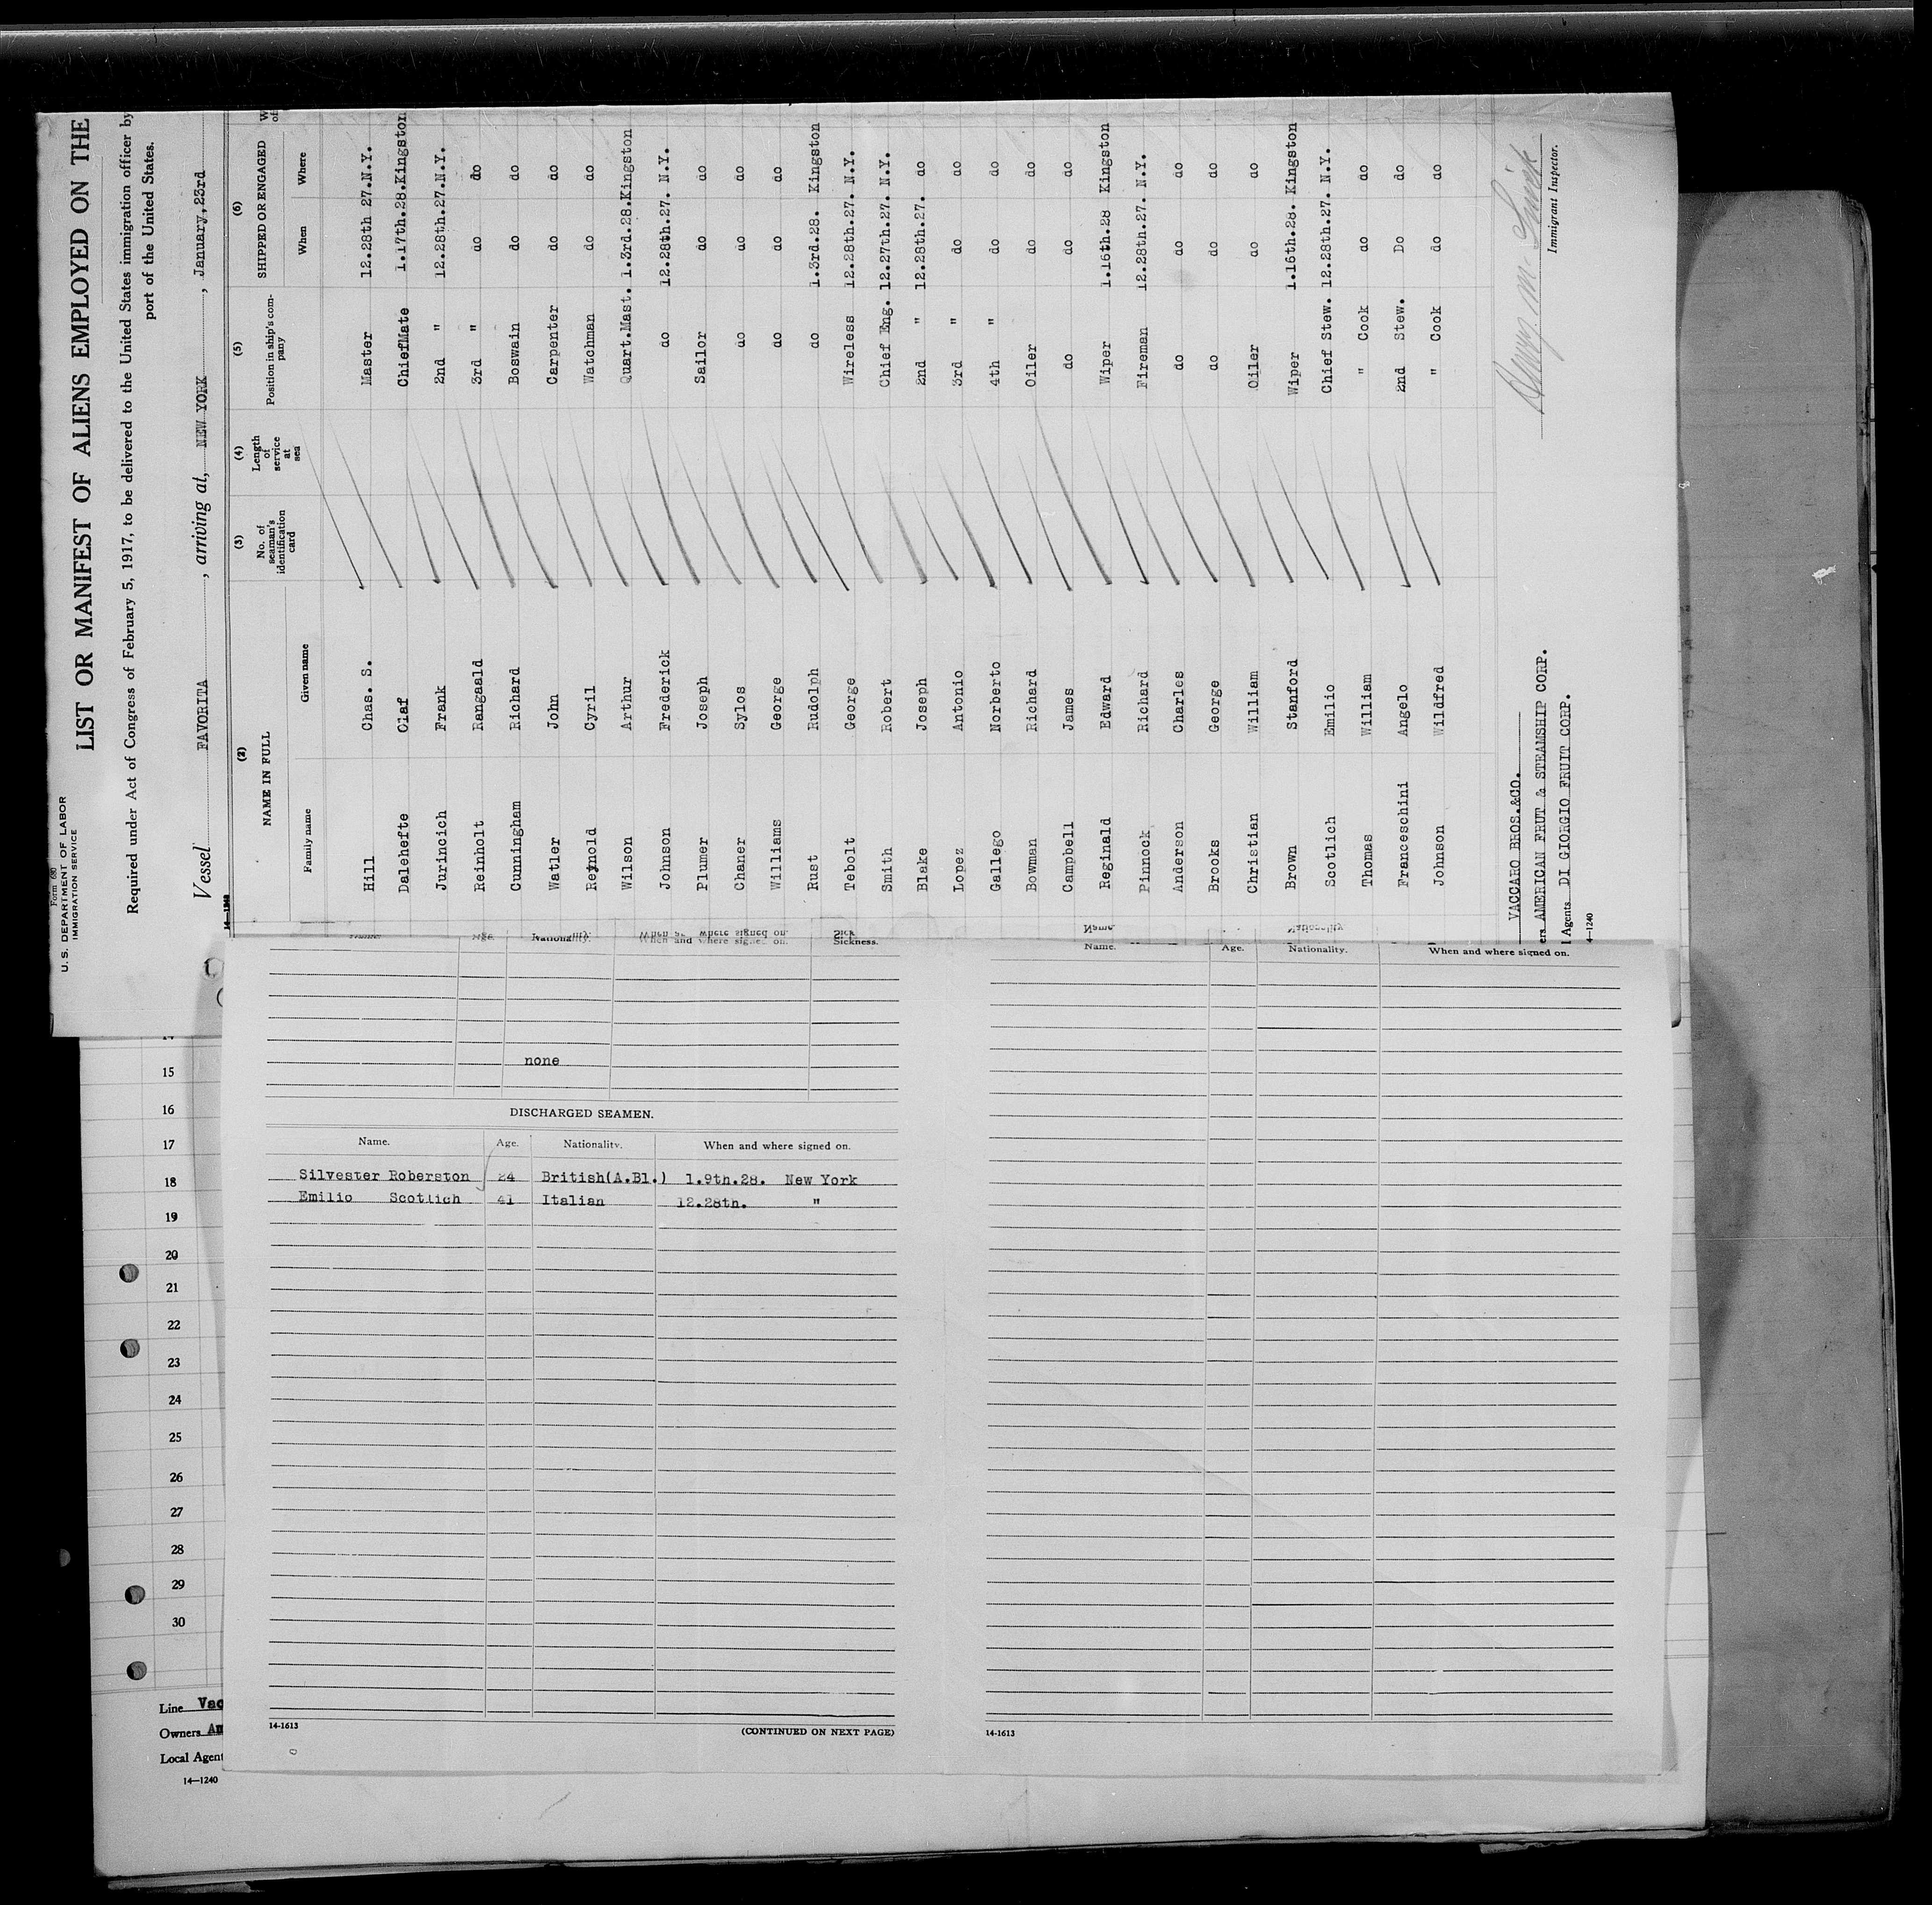 Form 680
U. S. DEPARTMENT OF LABOR
IMMIGRATION SERVICE
LIST OR MANIFEST OF ALIENS EMPLOYED ON THE
Required under Act of Congress of February 5, 1917, to be delivered to the United States immigration officer by
port of the United States.
Vessel FAVORITA, arriving at, NEW YORK, January,23rd
(2) (3) (4) (5) (6)
NAME IN FULL No. of seaman's identification card Length of service at sea Position in ship's com-pany SHIPPED OR ENGAGED
Family name Given name When Where
Hill Chas. S. Master 12.28th 27.N.Y.
Dalehefte Claf ChiefMate 1.17th.28.Kingston
Jurincich Frank 2nd " 12.28th.27.N.Y.
Reinholt Rangaald 3rd " do do
Cunningham Richard Boswain do do
Watler John Carpenter do do
Reynold Cyril Watchman do do
Wilson Arthur Quart.Mast. 1.3rd.28.Kingston
Johnson Frederick do 12.28th.27. N.Y.
Plumer Joseph Sailor do do
Chaner Sylos do do do
Williams George do do do
Rust Rudolph do 1.3rd.28. Kingston
Tebolt George Wireless 12.28th.27. N.Y.
Smith Robert Chief Eng. 12.27th.27. N.Y.
Blake Joseph 2nd " 12.28th.27. do
Lopez Antonio 3rd " do do
Gallego Norberto 4th " do do
Bowman Richard Oiler do do
Campbell James do do do
Reginald Edward Wiper 1.16th.28 Kingston
Pinnock Richard Fireman 12.28th.27. N.Y.
Anderson Charles do do do
Brooks George do do do
Christian William Oiler do do
Brown Stanford Wiper 1.16th.28. Kingston
Scotlich Emilio Chief Stew. 12.28th.27. N.Y.
Thomas William " Cook do do
Franceschini Angelo 2nd Stew. Do do
Johnson Wildfred " Cook do do
VACCARO BROS.&CO.
ers AMERICAN FRUT & STEAMSHIP CORP.
l Agents DI GIORGIO FRUIT CORP.
Immigrant Inspector.
4—1240
Age. Nationality. When and where signed on. Sickness.
none
DISCHARGED SEAMEN.
Name. Age. Nationality. When and where signed on.
Silvester Roberston 24 British(A.Bl.) 1.9th.28. New York
Emilio Scotlich 41 Italian 12.28th. "
14-1613
(CONTINUED ON NEXT PAGE)
Name. Age. Nationality. When and where signed on.
14-1613
15
16
17
18
19
20
21
22
23
24
25
26
27
28
29
30
Line Vac
Owners Am
Local Agent
14—1240